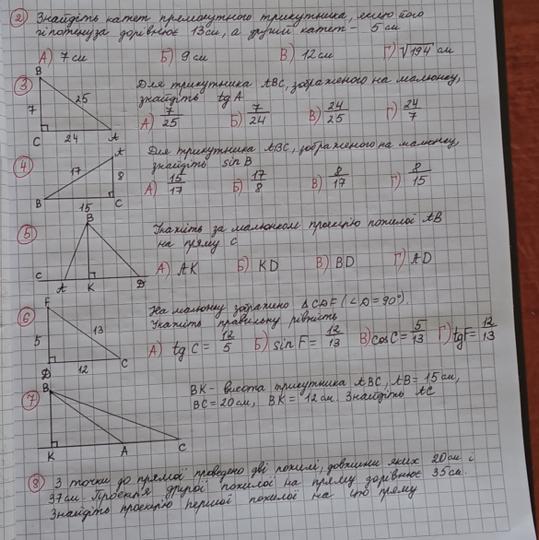 2 Знайдіть катет прямокутного трикутника, якщо його
гіпотенуза дорівнює 13см, а другий катет – 5 см
А) 7 см Б) 9 см В) 12 см Г) √194 см
3 Для трикутника АВС, зображеного на малюнку,
знайдіть tg A
А) 7/25 Б) 7/24 В) 24/25 Г) 24/7
B
7
25
C 24 A
4 Для трикутника АВС, зображеного на малюнку,
знайдіть sin B
А) 15/17 Б) 17/8 В) 8/17 Г) 8/15
A
17
8
B 15 C
5 Укажіть за малюнком проекцію похилої АВ
на пряму с
А) АК Б) KD В) BD Г) AD
B
C A K D
6 На малюнку зображено △CDF (∠D = 90°).
Укажіть правильну рівність
А) tg C = 12/5 Б) sin F = 12/13 В) cos C = 5/13 Г) tg F = 12/13
F
5
13
D 12 C
7 ВК – висота трикутника АВС, АВ = 15 см,
ВС = 20 см, ВК = 12 см. Знайдіть АС
B
K A C
8 З точки до прямої проведено дві похилі, довжини яких 20см і
37см. Проекція другої похилої на пряму дорівнює 35см.
Знайдіть проекцію першої похилої на цю пряму